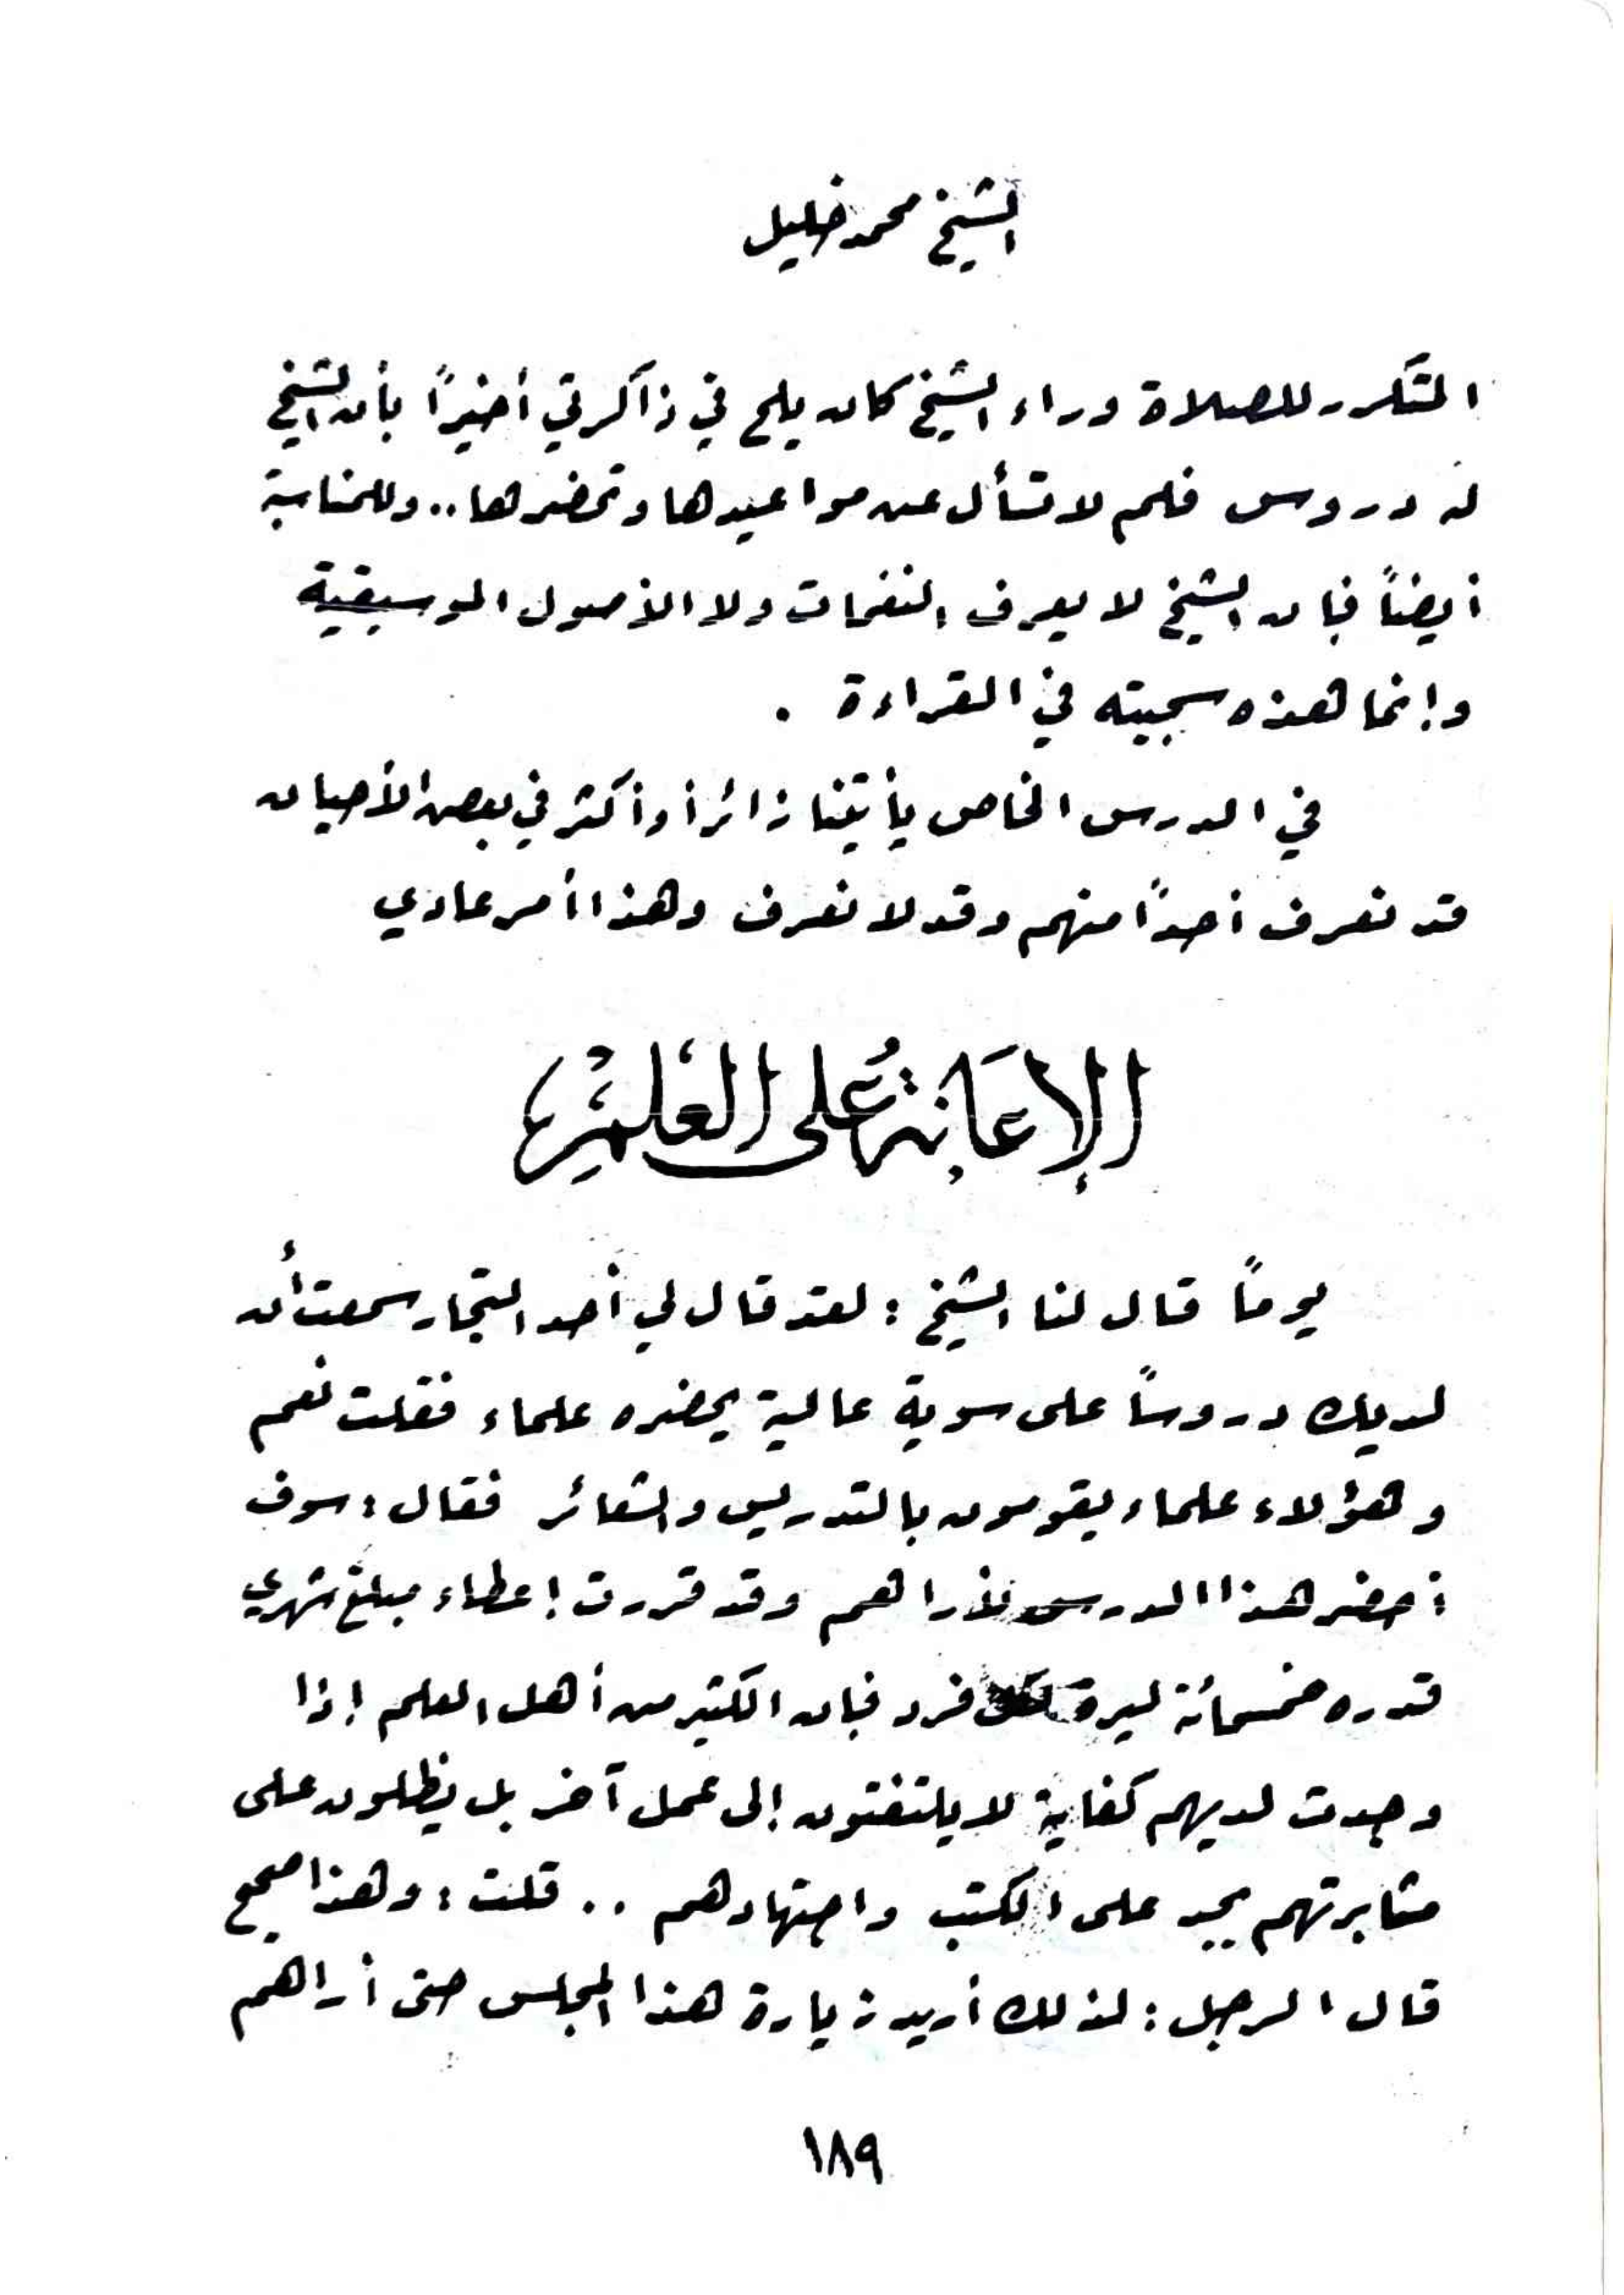 الشيخ محمد خليل
المتكرر للصلاة وراء الشيخ كان يلح في ذاكرتي أخيراً بأن الشيخ
له دروس فلم لا تسأل عن مواعيدها وتحضرها .. وللمناسبة
أيضاً فإن الشيخ لا يعرف النغمات ولا الأصول الموسيقية
وإنما هذه سجيته في القراءة .
في الدرس الخاص يأتينا زائراً وأكثر في بعض الأحيان
قد نعرف أحداً منهم وقد لا نعرف وهذا أمر عادي
الإعانة على العلم
يوماً قال لنا الشيخ : لقد قال لي أحد التجار سمعت أن
لديك دروساً على سوية عالية يحضره علماء فقلت نعم
وهؤلاء علماء يقومون بالتدريس والشعائر فقال : سوف
أحضر هذا الدرس لأراهم وقد قررت إعطاء مبلغ شهري
قدره خمسمائة ليرة لكل فرد فإن الكثير من أهل العلم إذا
وجدت لديهم كفاية لا يلتفتون إلى عمل آخر بل يظلون على
مثابرتهم بجد على الكتب واجتهادهم .. قلت : وهذا صحيح
قال الرجل : لذلك أريد زيارة هذا المجلس حتى أراهم
١٨٩